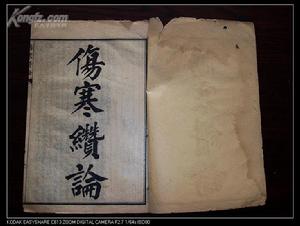 Kongfz.com
傷寒纘論
KODAK EASYSHARE C813 ZOOM DIGITAL CAMERA F2.7 1/64s ISO80